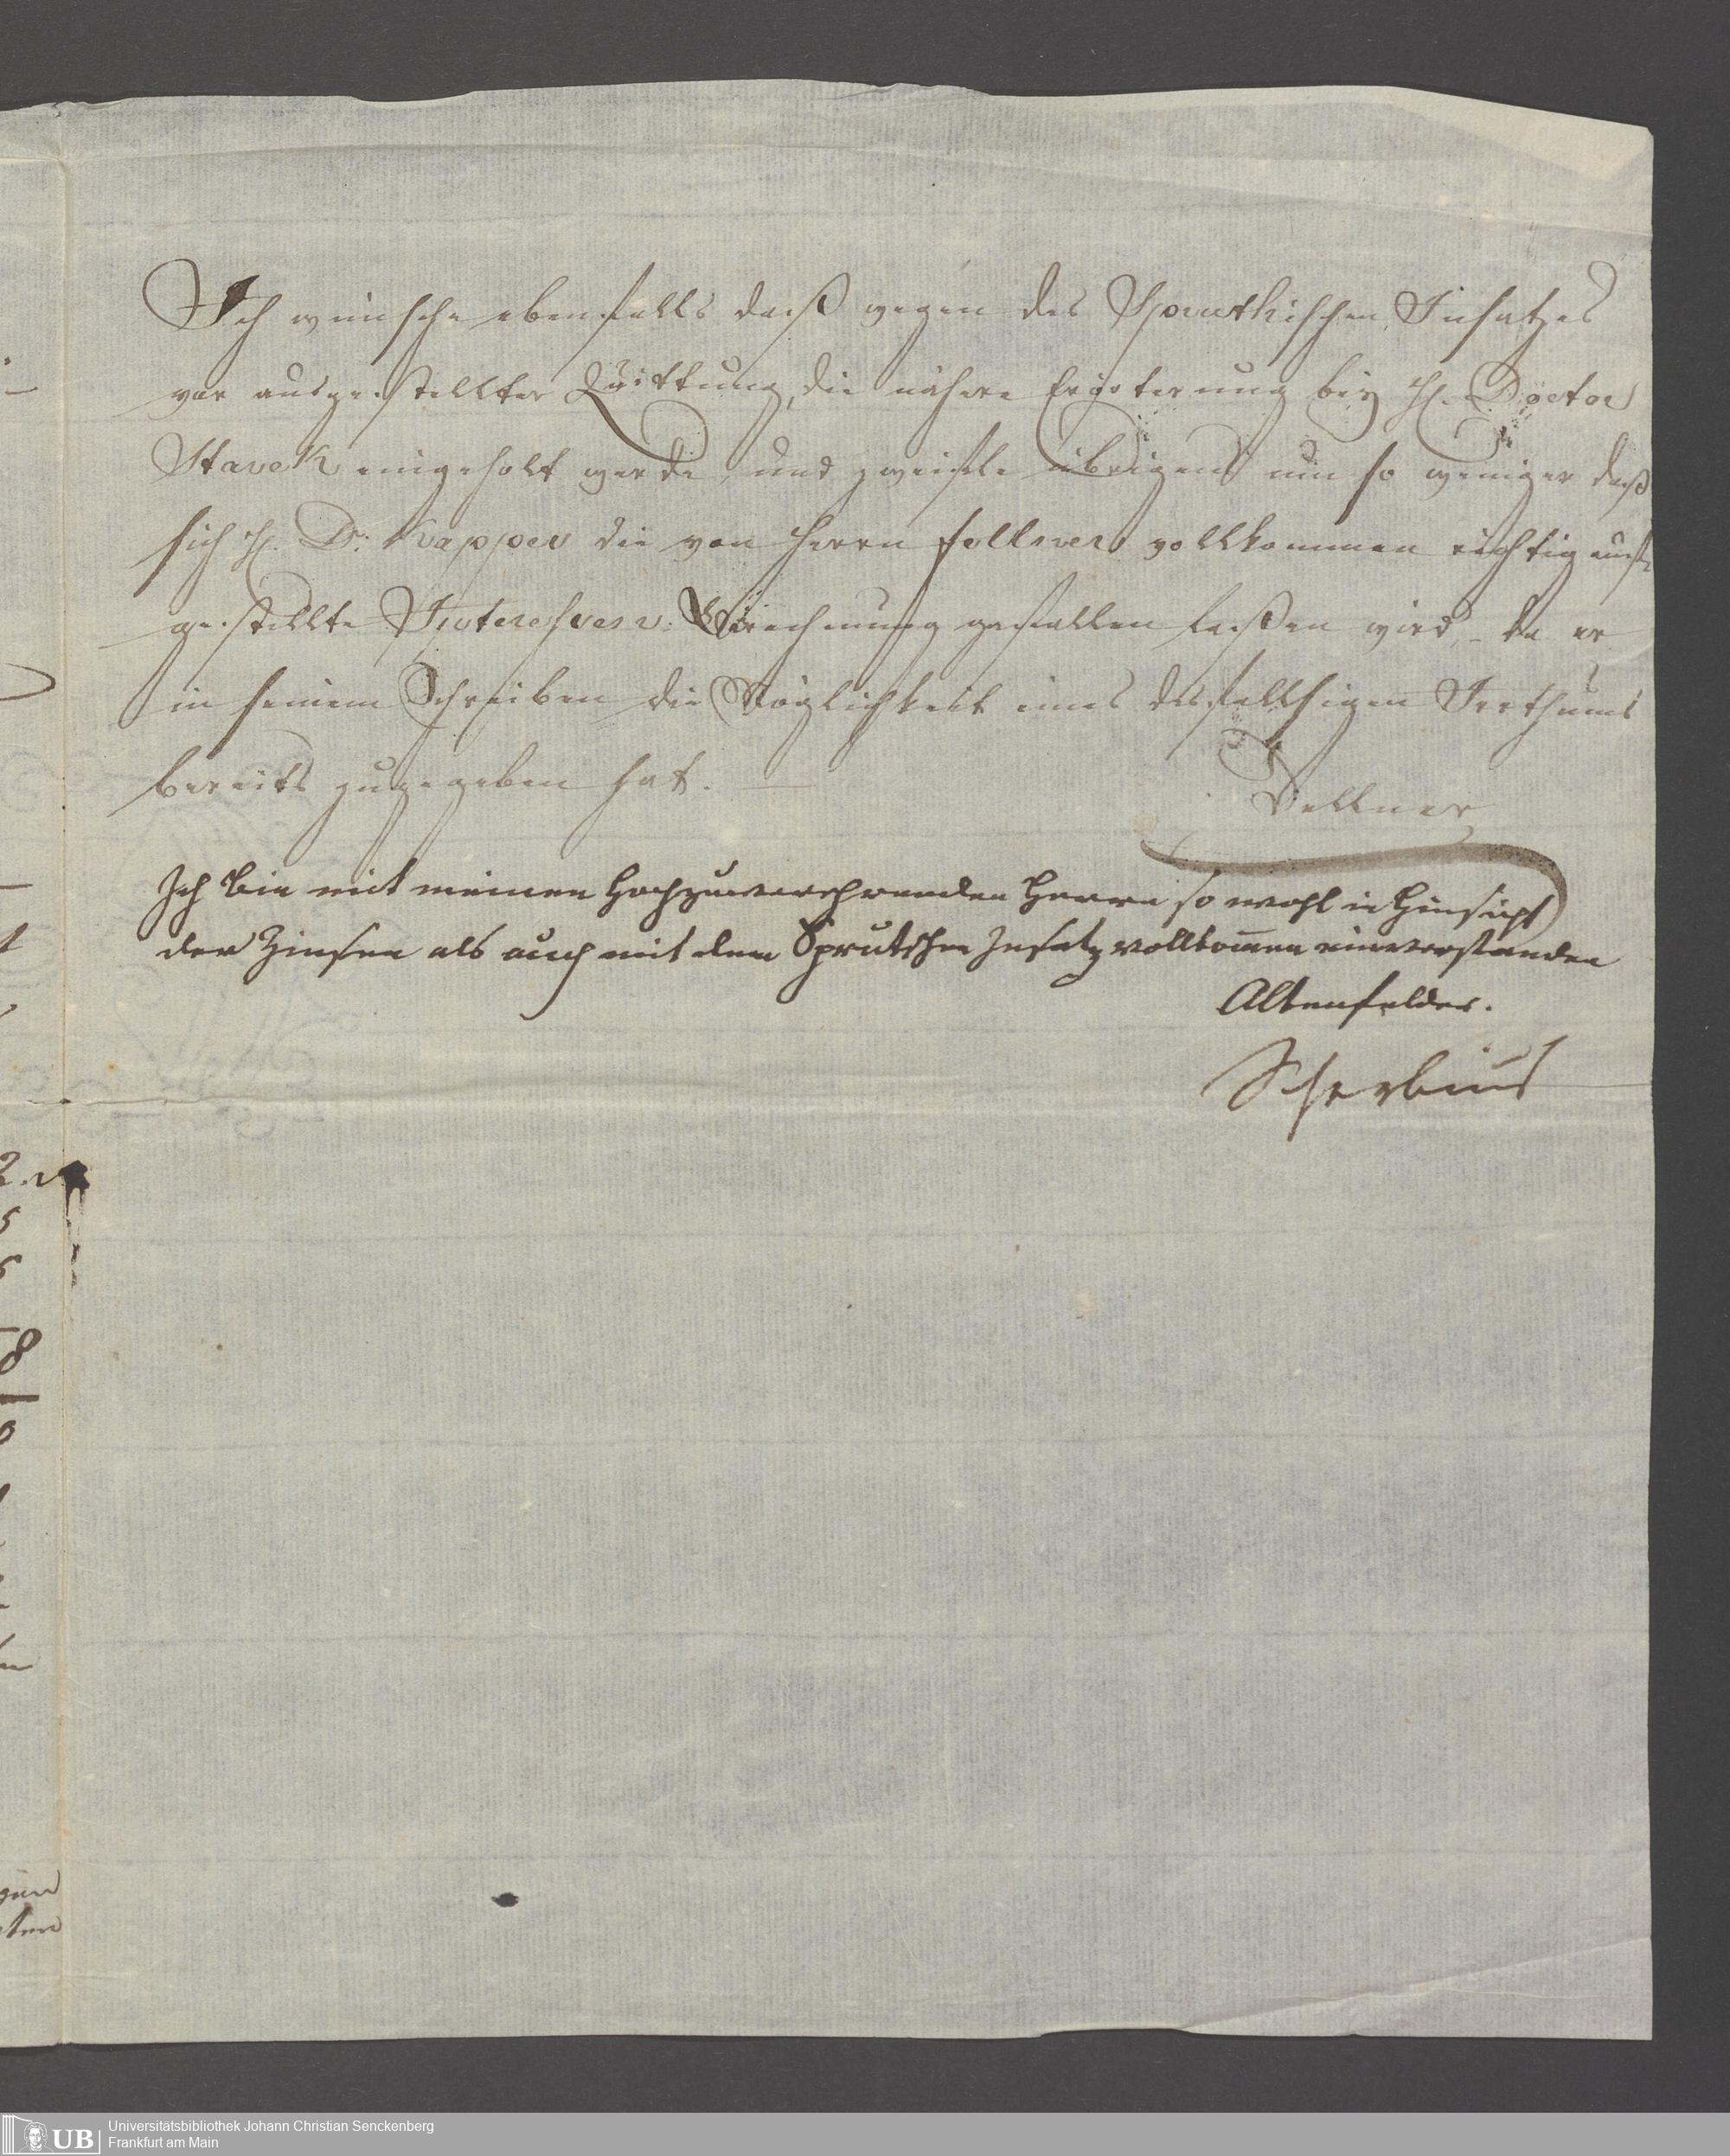 Ich wünsche ebenfalls daß wegen des Spruthischen Insatzes
vor ausgestellter Quittung, die nähere Erörterung bey H. Doctor
Starck eingeholt werde, und zweifle übrigens um so weniger daß
sich H. Dr. Kapper die von Herrn Fellner vollkommen richtig auf-
gestellte Interessen: Berechnung gefallen laßen wird, - da er
in seinem Schreiben die Möglichkeit eines desfallsigen Irrthums
bereits zugegeben hat. —
Dellner
Ich bin mit meinen Hochzuverehrenden Herrn so wohl in Hinsicht
der Zinsen als auch mit dem Sprutschen Insatz vollkomen einverstanden
Altenfelder.
Scherbius
UB Universitätsbibliothek Johann Christian Senckenberg
Frankfurt am Main